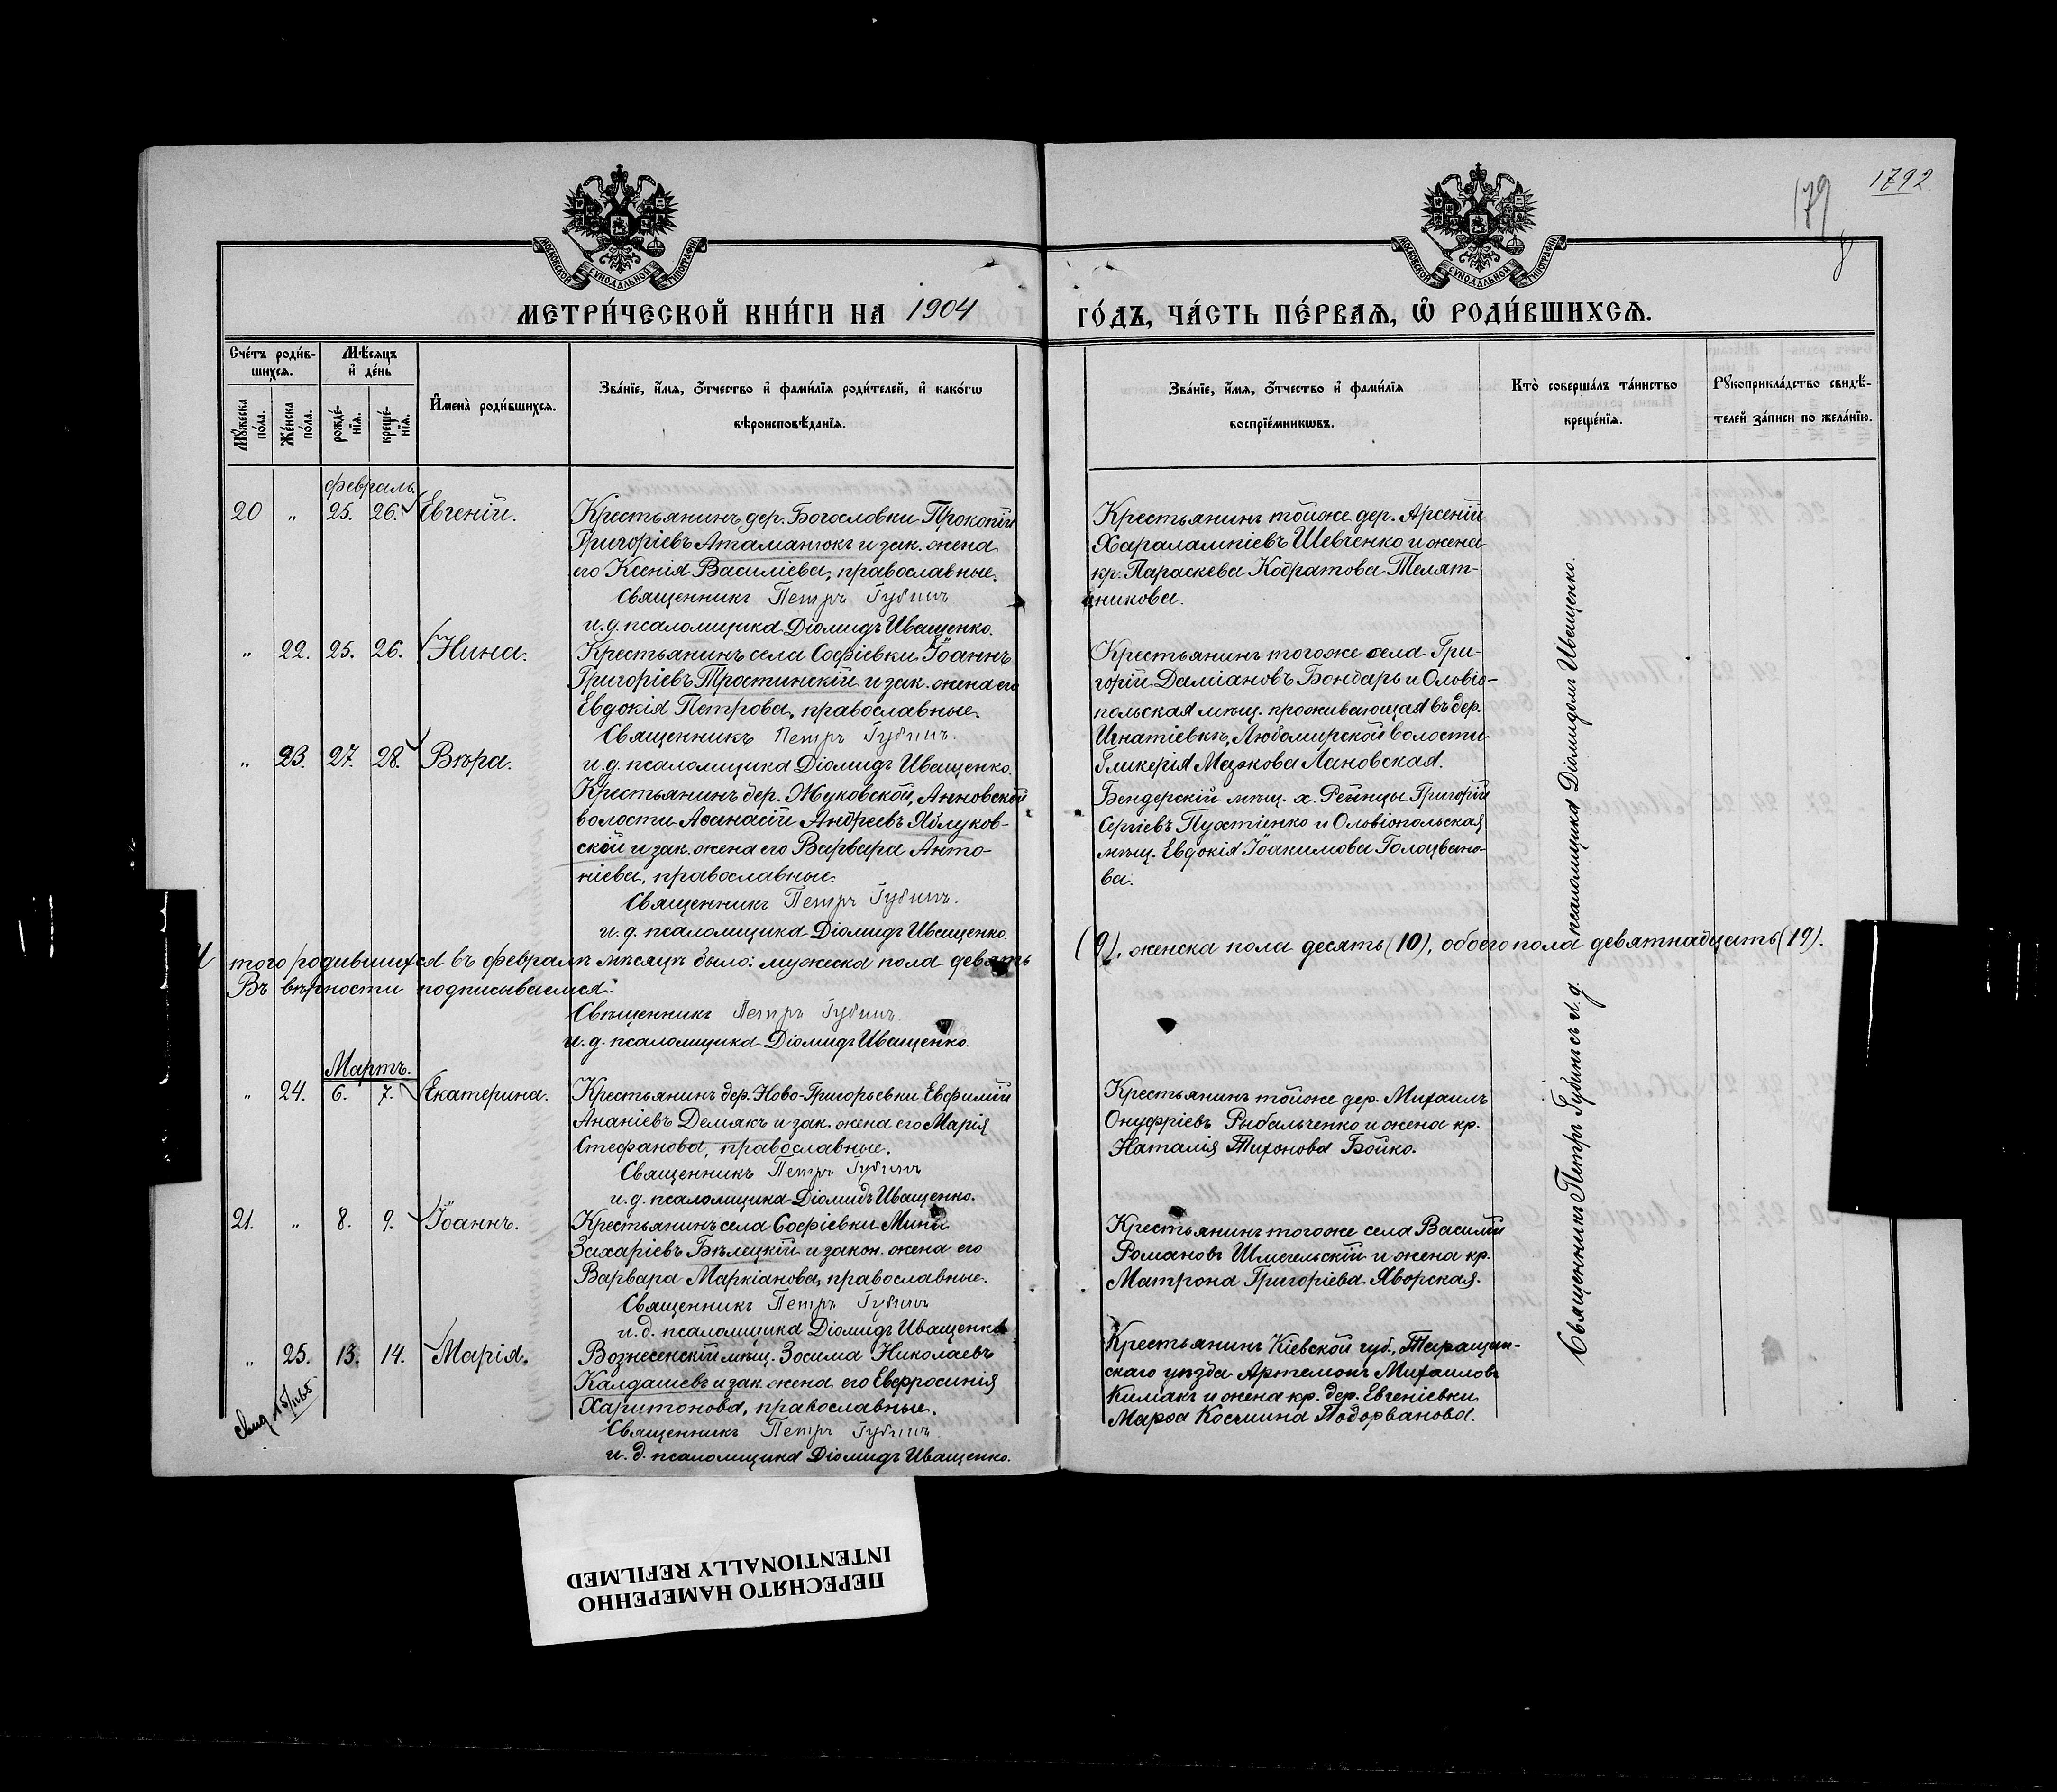 179
1792
МОСКОВСКОЙ СУНОДАЛЬНОЙ ТИПОГРАФІИ
МОСКОВСКОЙ СУНОДАЛЬНОЙ ТИПОГРАФІИ
МЕТРИ́ЧЕСКОЙ КНИ́ГИ НА 1904
ГО́ДЪ, ЧА́СТЬ ПЕ́РВАѦ, Ѡ РОДИ́ВШИХСѦ.
Сче́тъ роди́в-
шихсѧ.
Мѣ́сѧцъ
и҆ де́нь
Мꙋ́жеска по́ла.
Же́нска по́ла.
рожде́-
нїѧ.
креще́-
нїѧ.
И҆мена̀ роди́вшихсѧ.
Зва́нїе, и҆́мѧ, ѻ҆́тчество и҆ фами́лїѧ роди́телей, и҆ како́гѡ
вѣроисповѣ́данїѧ.
Зва́нїе, и҆́мѧ, ѻ҆́тчество и҆ фами́лїѧ
воспрїе́мникѡвъ.
Кто̀ соверша́лъ та́инство
креще́нїѧ.
Рꙋкоприкла́дство свидѣ́-
телей за́писи по жела́нїю.
Февраль.
20 „ 25. 26. Евгеній.
Крестьянинъ дер. Богословки Прокопій
Григоріевъ Атаманюкъ и зак. жена
его Ксенія Василіева, православные.
Священникъ Петръ Губинъ
и. д. псаломщика Діомидъ Иващенко.
Крестьянинъ тойже дер. Арсеній
Харалампіевъ Шевченко и жена
кр. Параскева Кодратова Телят-
никова.
„ 22. 25. 26. Нина.
Крестьянинъ села Софіевки Іоаннъ
Григоріевъ Тростинскій и зак. жена его
Евдокія Петрова, православные.
Священникъ Петръ Губинъ.
и. д. псаломщика Діомидъ Иващенко.
Крестьянинъ тогоже села Гри-
горій Даміановъ Бондарь и Ольвіо-
польская мѣщ. проживающая въ дер.
Игнатіевкѣ, Любомирской волости
Гликерія Маркова Лановская.
„ 23. 27. 28. Вѣра.
Крестьянинъ дер. Жуковской, Анновской
волости Аѳанасій Андреевъ Яблуков-
скій и зак. жена его Варвара Анто-
ніева, православные.
Священникъ Петръ Губинъ.
и. д. псаломщика Діомидъ Иващенко.
Бендерскій мѣщ. х. Рейнцы Григорій
Сергіевъ Пустіенко и Ольвіопольская
мѣщ. Евдокія Іоакимова Голоцвано-
ва.
Итого родившихся въ февралѣ мѣсяцѣ было: мужеска пола девять
(9), женска пола десять (10), обоего пола девятнадцать (19).
Въ вѣрности подписываемся:
Священникъ Петръ Губинъ.
и. д. псаломщика Діомидъ Иващенко.
Мартъ.
„ 24. 6. 7. Екатерина.
Крестьянинъ дер. Ново-Григорьевки Евфимій
Ананіевъ Демякъ и зак. жена его Марія
Стефанова, православные.
Священникъ Петръ Губинъ
и. д. псаломщика Діомидъ Иващенко.
Крестьянинъ тойже дер. Михаилъ
Онуфріевъ Рыбальченко и жена кр.
Наталія Тихонова Бойко.
21. „ 8. 9. Іоаннъ.
Крестьянинъ села Софіевки Мина
Захаріевъ Бѣлецкій и закон. жена его
Варвара Маркіанова, православные.
Священникъ Петръ Губинъ
и. д. псаломщика Діомидъ Иващенко
Крестьянинъ тогоже села Василій
Романовъ Шмигельскій и жена кр.
Матрона Григоріева Яворская.
„ 25. 13. 14. Марія.
Вознесенскій мѣщ. Зосима Николаевъ
Калдашевъ и зак. жена его Евфросинія
Харитонова, православные.
Священникъ Петръ Губинъ.
и. д. псаломщика Діомидъ Иващенко.
Крестьянинъ Кіевской губ., Таращан-
скаго уѣзда Артемонъ Михаиловъ
Кимакъ и жена кр. дер. Евгеніевки
Марѳа Космина Подорванова.
Священникъ Петръ Губинъ съ и. д. псаломщика Діомидомъ Иващенко.
ПЕРЕСНЯТО НАМЕРЕННО
INTENTIONALLY REFILMED